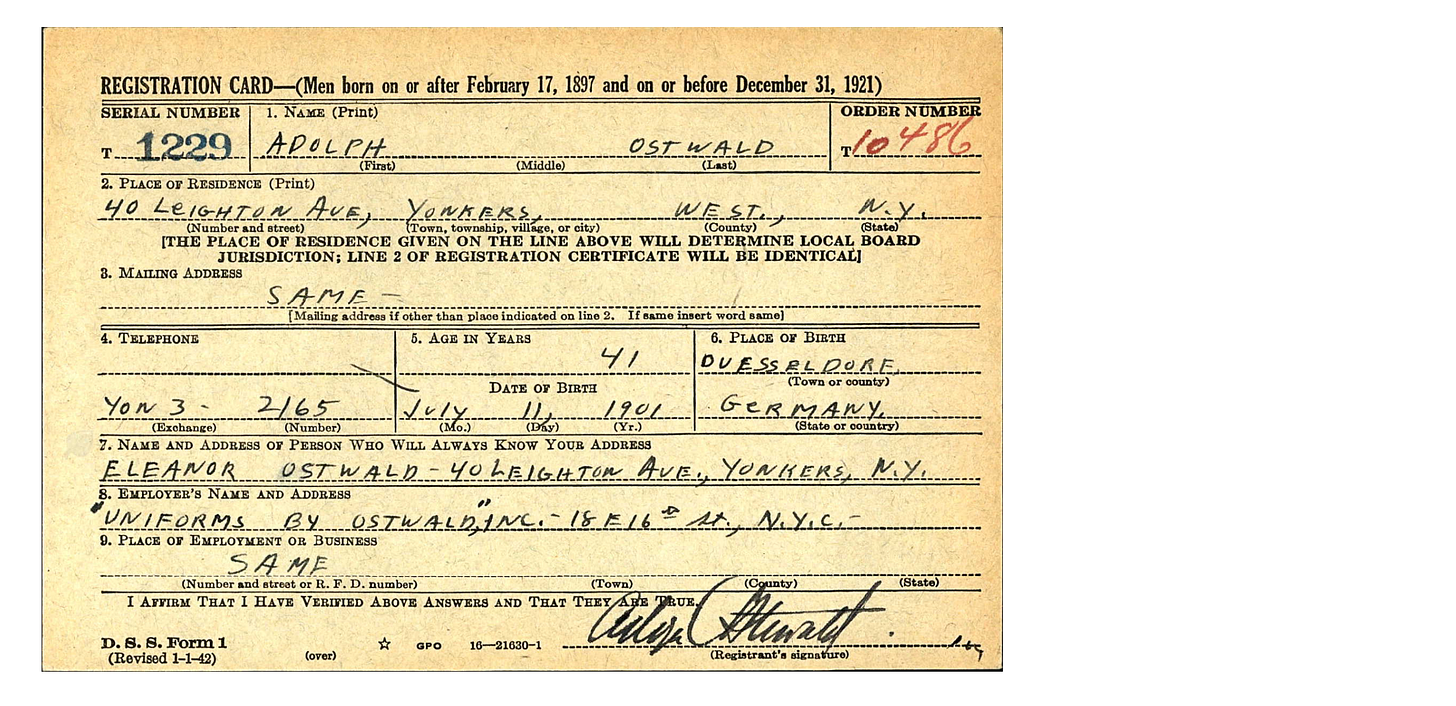 REGISTRATION CARD—(Men born on or after February 17, 1897 and on or before December 31, 1921)
SERIAL NUMBER 1. NAME (Print) ORDER NUMBER
T 1229 ADOLPH OSTWALD T 10486
(First) (Middle) (Last)
2. PLACE OF RESIDENCE (Print)
40 LEIGHTON AVE, YONKERS, WEST., N.Y.
(Number and street) (Town, township, village, or city) (County) (State)
[THE PLACE OF RESIDENCE GIVEN ON THE LINE ABOVE WILL DETERMINE LOCAL BOARD
JURISDICTION; LINE 2 OF REGISTRATION CERTIFICATE WILL BE IDENTICAL]
3. MAILING ADDRESS
SAME —
[Mailing address if other than place indicated on line 2. If same insert word same]
4. TELEPHONE 5. AGE IN YEARS 6. PLACE OF BIRTH
41 DUESSELDORF
DATE OF BIRTH (Town or county)
YON 3 - 2165 July 11, 1901 GERMANY
(Exchange) (Number) (Mo.) (Day) (Yr.) (State or country)
7. NAME AND ADDRESS OF PERSON WHO WILL ALWAYS KNOW YOUR ADDRESS
ELEANOR OSTWALD - 40 LEIGHTON AVE., YONKERS, N.Y.
8. EMPLOYER'S NAME AND ADDRESS
"UNIFORMS BY OSTWALD," INC. - 18 E 16th St., N.Y.C. -
9. PLACE OF EMPLOYMENT OR BUSINESS
SAME
(Number and street or R. F. D. number) (Town) (County) (State)
I AFFIRM THAT I HAVE VERIFIED ABOVE ANSWERS AND THAT THEY ARE TRUE.
Adolph Ostwald
D. S. S. Form 1 ☆ GPO 16—21630-1
(Revised 1-1-42) (over) (Registrant's signature)